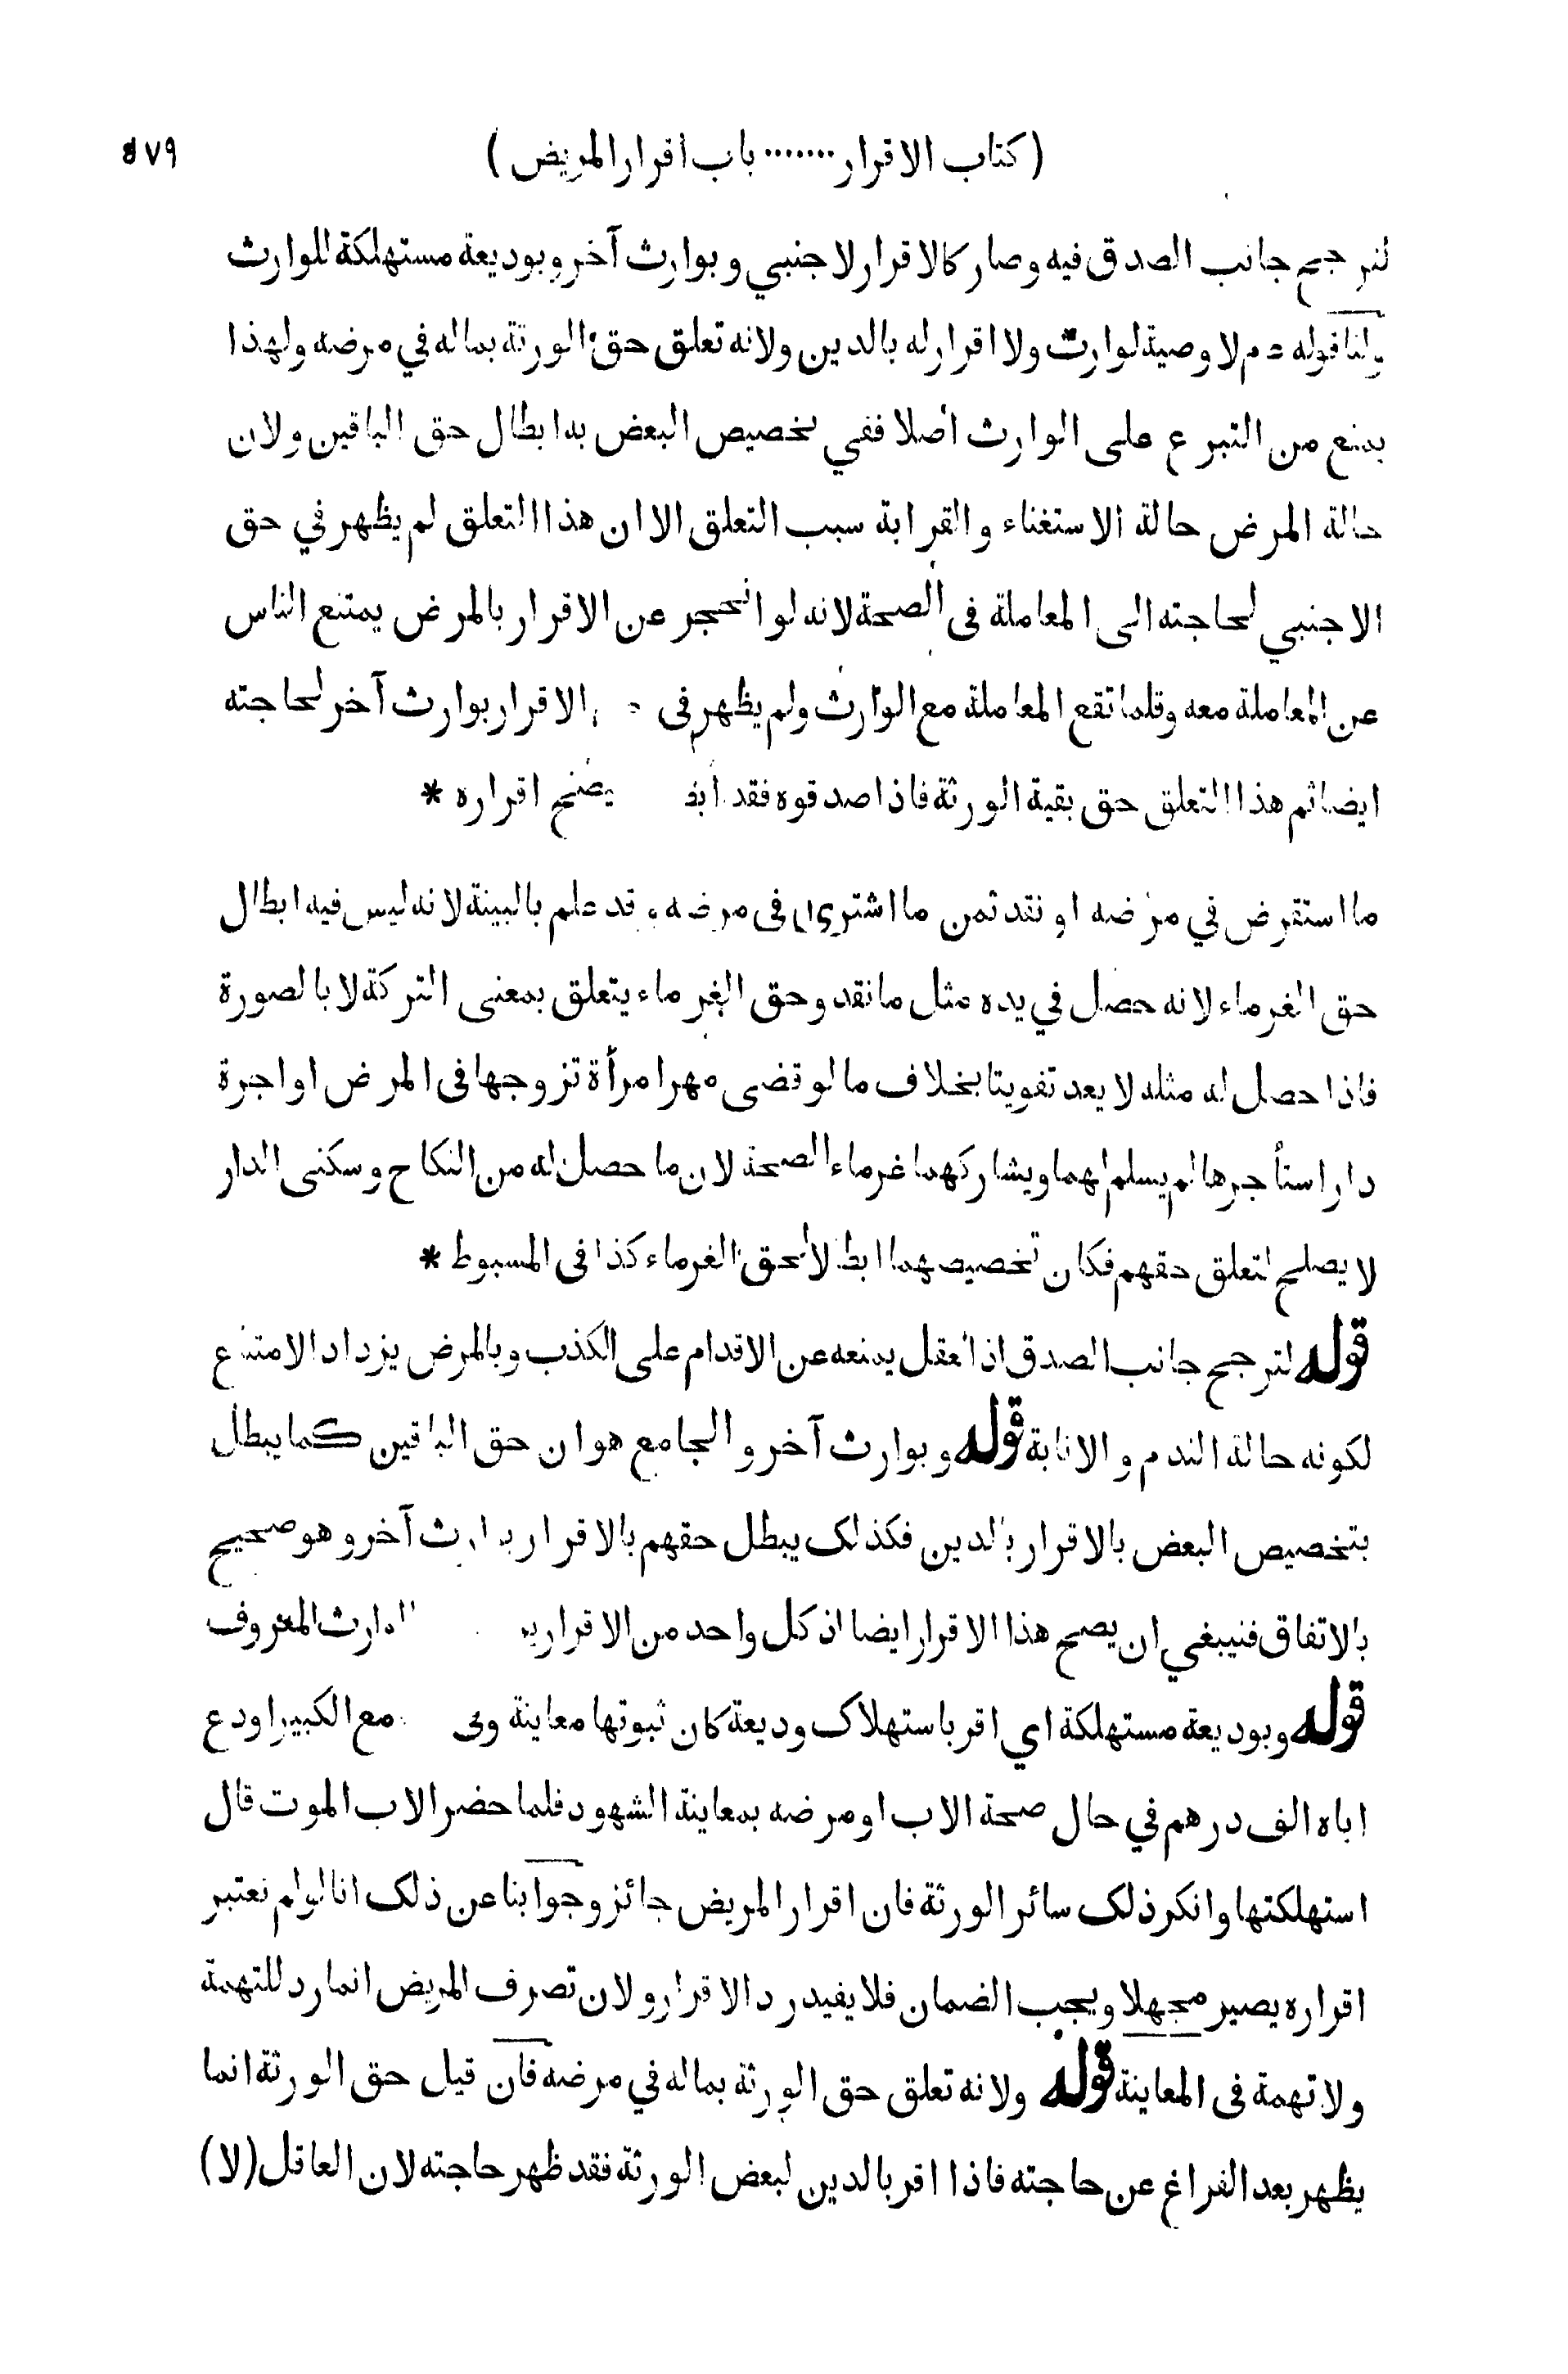 (كتاب الاقرار ........ باب اقرار المريض) ٥٧٩
لترجح جانب الصدق فيه وصار كالاقرار لاجنبي وبوارث آخر وبوديعة مستهلكة للوارث
ولنا قوله عم لا وصية لوارث ولا اقرار له بالدين ولانه تعلق حق الورثة بماله في مرضه ولهذا
يمنع من التبرع على الوارث أصلا ففي تخصيص البعض به ابطال حق الباقين ولان
حالة المرض حالة الاستغناء والقرابة سبب التعلق الا ان هذا التعلق لم يظهر في حق
الاجنبي لحاجته الى المعاملة في الصحة لانه لو انحجر عن الاقرار بالمرض يمتنع الناس
عن المعاملة معه وقلما تقع المعاملة مع الوارث ولم يظهر في الاقرار بوارث آخر لحاجته
ايضا ثم هذا التعلق حق بقية الورثة فاذا صدقوه فقد اقراره *
ما استقرض في مرضه او نقد ثمن ما اشترى في مرضه وقد علم بالبينة لانه ليس فيه ابطال
حق الغرماء لانه حصل في يده مثل ما نقد وحق الغرماء يتعلق بمعنى التركة لا بالصورة
فاذا حصل له مثله لا يعد تفويتا بخلاف ما لو قضى مهر امرأة تزوجها في المرض او اجرة
دار استأجرها لم يسلم لهما ويشاركهما غرماء الصحة لان ما حصل له من النكاح وسكنى الدار
لا يصلح لتعلق حقهم فكان تخصيصهما ابطالا لحق الغرماء كذا في المبسوط *
قوله لترجح جانب الصدق اذ العقل يمنعه عن الاقدام على الكذب وبالمرض يزداد الامتناع
لكونه حالة الندم والانابة قوله وبوارث آخر والجامع هو ان حق الباقين كما يبطل
بتخصيص البعض بالاقرار بالدين فكذلك يبطل حقهم بالاقرار بوارث آخر وهو صحيح
بالاتفاق فينبغي ان يصح هذا الاقرار ايضا اذ كل واحد من الاقرارين الوارث المعروف
قوله وبوديعة مستهلكة اي اقر باستهلاك وديعة كان ثبوتها معاينة مع الكبير اودع
اباه الف درهم في حال صحة الاب او مرضه بمعاينة الشهود فلما حضر الاب الموت قال
استهلكتها وانكر ذلك سائر الورثة فان اقرار المريض جائز وجوابنا عن ذلك انا لو لم نعتبر
اقراره يصير مجهلا ويجب الضمان فلا يفيد رد الاقرار ولان تصرف المريض انما رد للتهمة
ولا تهمة في المعاينة قوله ولانه تعلق حق الورثة بماله في مرضه فان قيل حق الورثة انما
يظهر بعد الفراغ عن حاجته فاذا اقر بالدين لبعض الورثة فقد ظهر حاجته لان العاقل (لا)